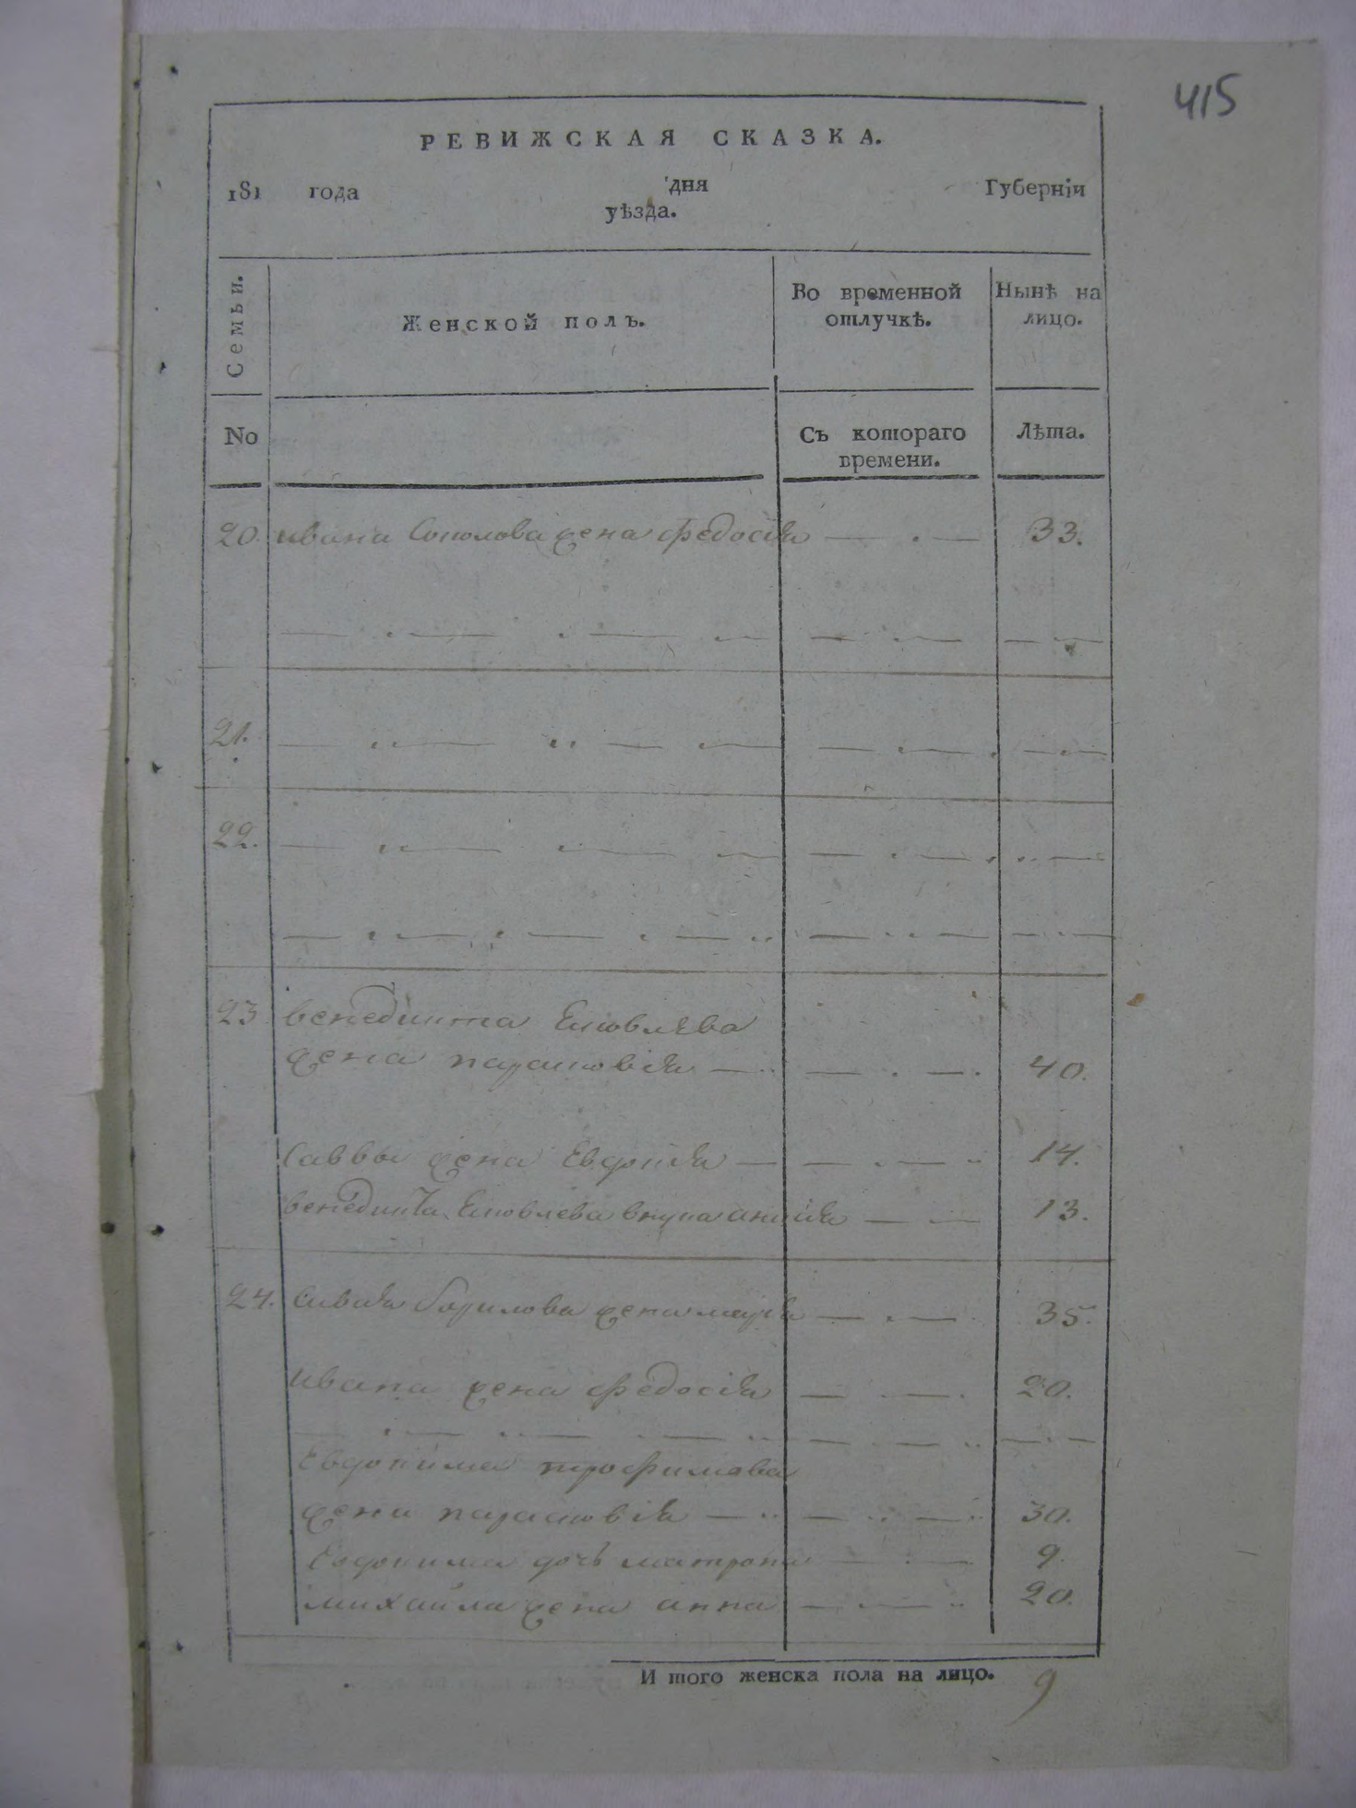 415
РЕВИЖСКАЯ СКАЗКА.
181 года дня Губерніи
уѣзда.
Семьи.
Женской полъ.
Во временной отлучкѣ.
Нынѣ на лицо.
No
Съ котораго времени.
Лѣта.
20. ивана Соколова жена федосія — . — 33.
21.
22.
23 венедикта Яковлева
жена парасковія — 40.
Саввы жена Евдокія — 14.
венедикта Яковлева внука анисія — 13.
24. жена марія — 35.
ивана жена федосія — 20.
Евдокима трофимова
жена парасковія — 30.
Евдокима дочь матрона — 9.
михаила жена анна — 20.
И того женска пола на лицо. 9